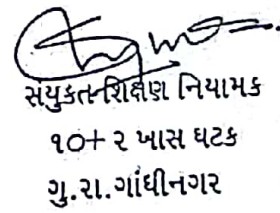 સંયુકત શિક્ષણ નિયામક
૧૦+ ૨ ખાસ ઘટક
ગુ.રા.ગાંધીનગર